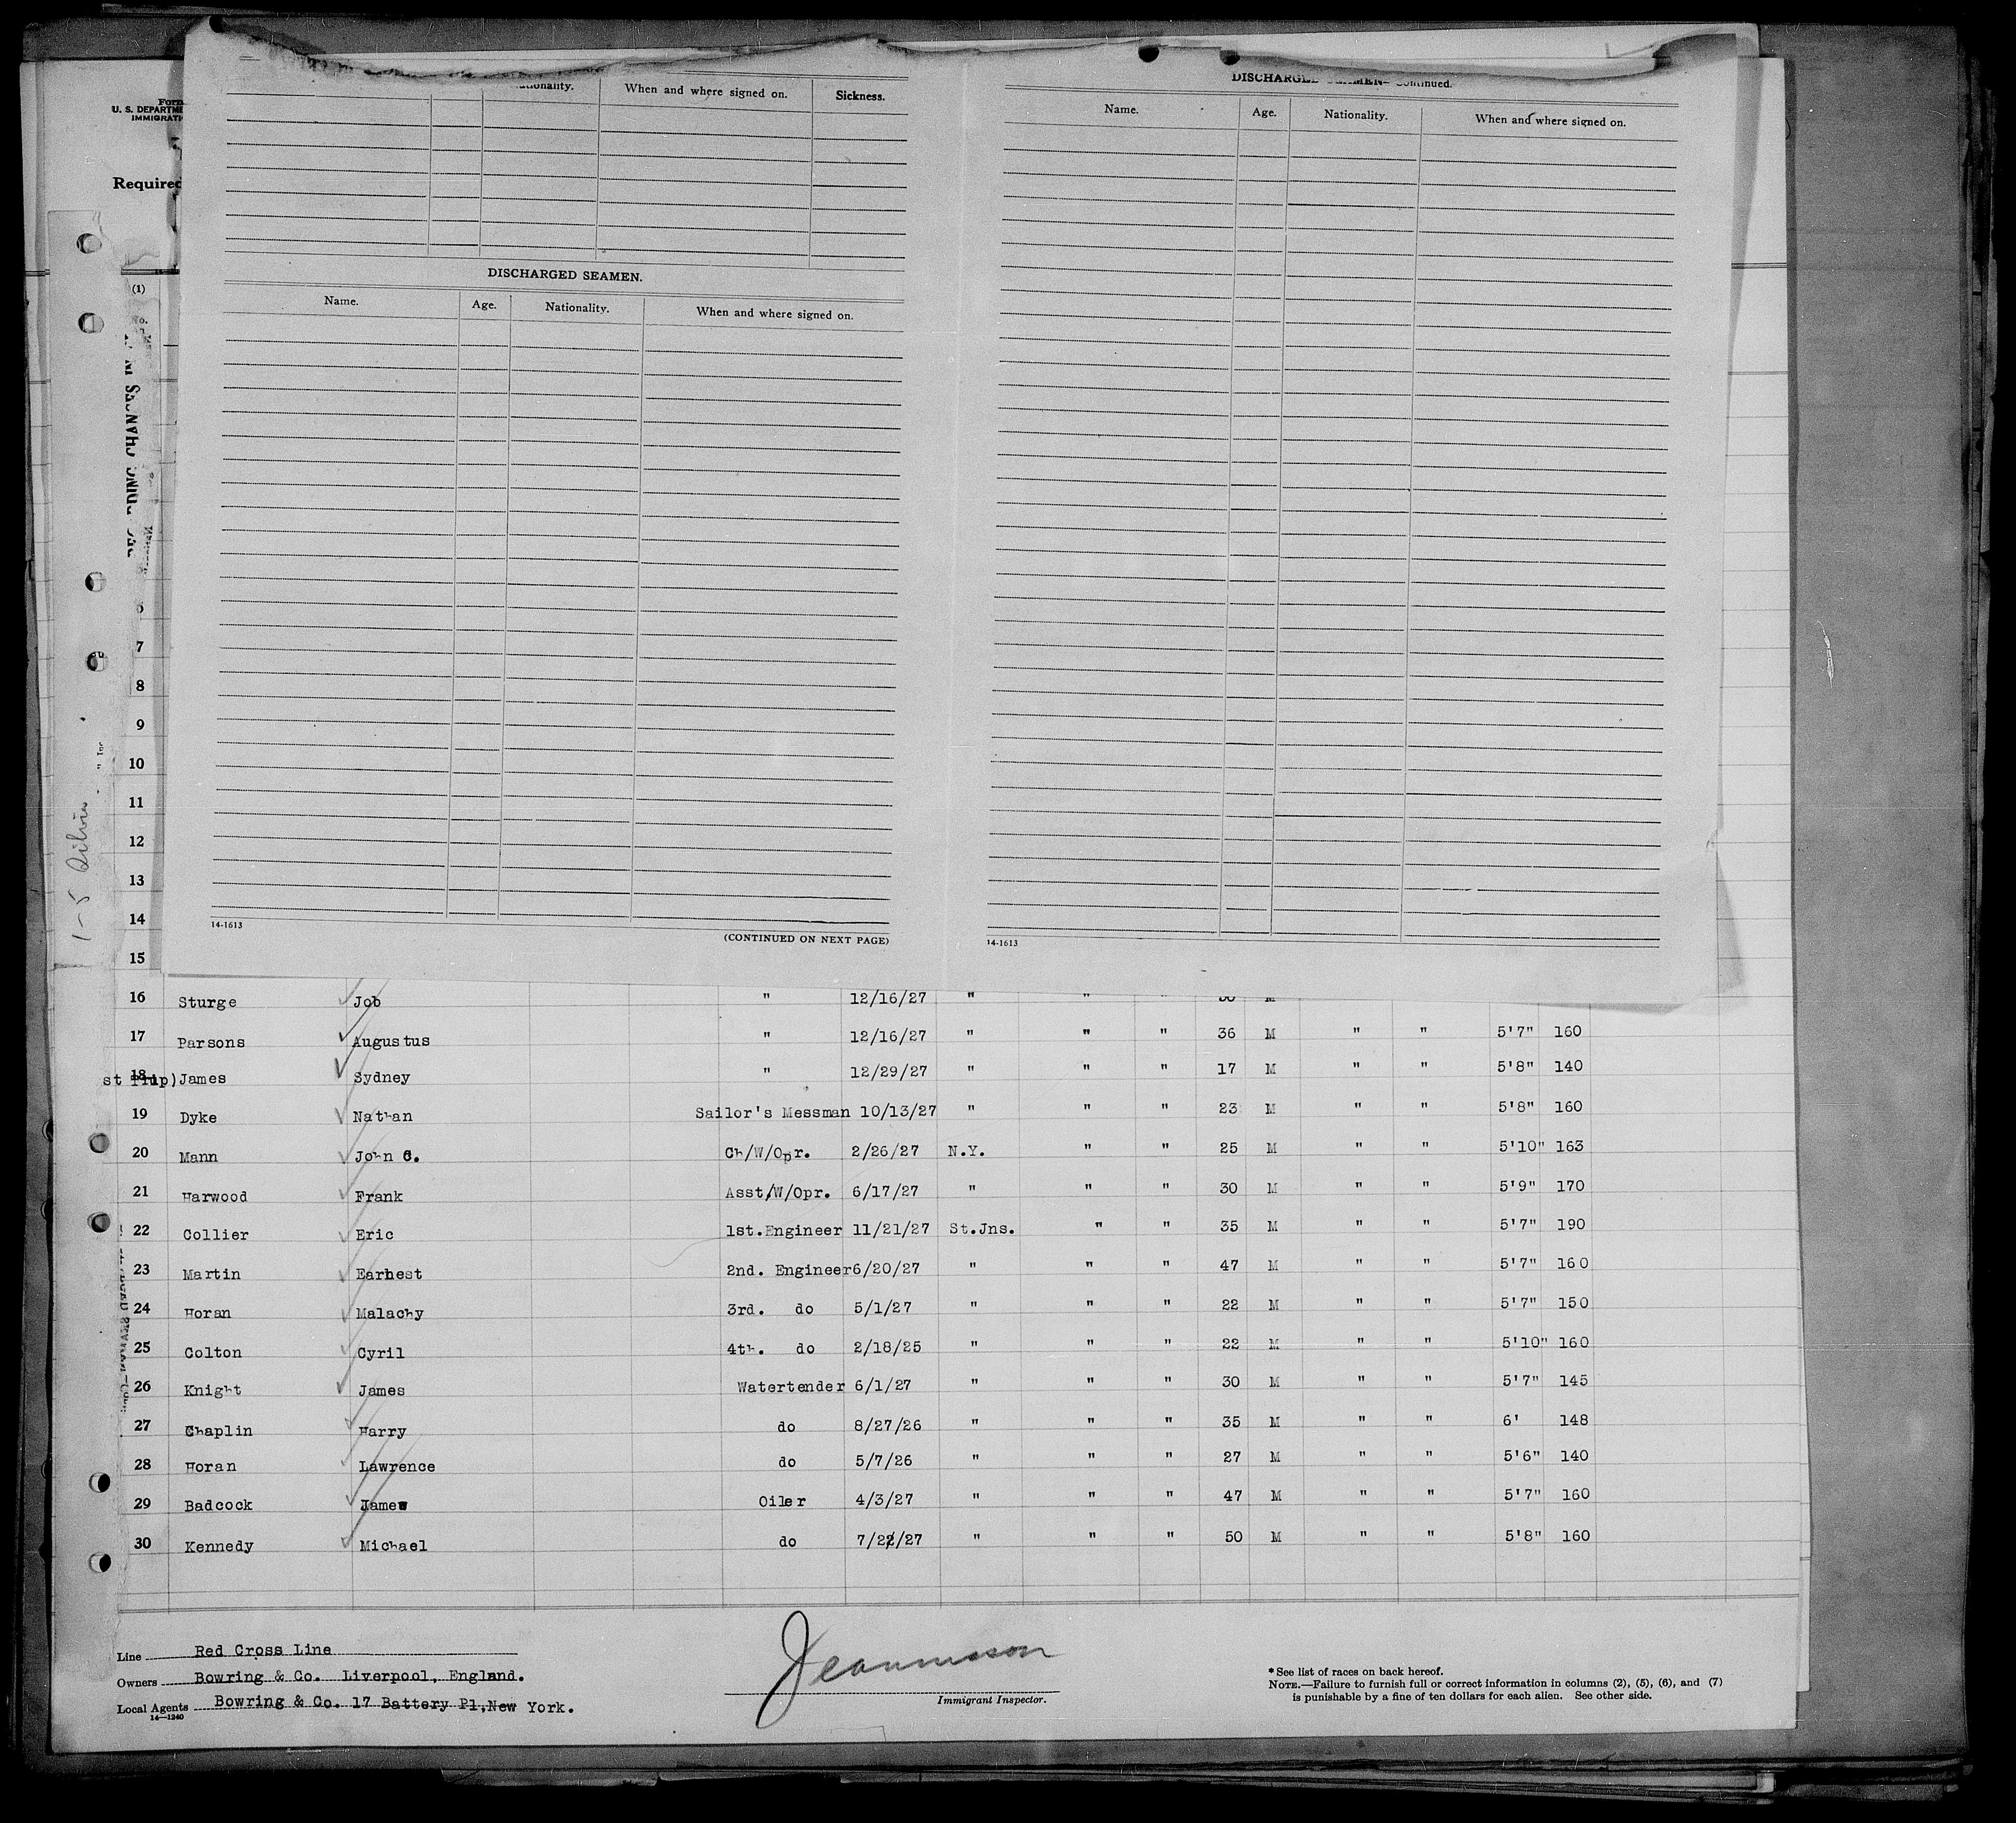 Form
U. S. DEPARTME
IMMIGRATI
Required
(1)
No.
Nationality. When and where signed on. Sickness.
DISCHARGED SEAMEN.
Name. Age. Nationality. When and where signed on.
14-1613
(CONTINUED ON NEXT PAGE)
DISCHARGED SEAMEN—Continued.
Name. Age. Nationality. When and where signed on.
14-1613
7
8
9
10
11
12
13
14
15
16 Sturge Job " 12/16/27 " " " M
17 Parsons Augustus " 12/16/27 " " " 36 M " " 5'7" 160
18 James Sydney " 12/29/27 " " " 17 M " " 5'8" 140
19 Dyke Nathan Sailor's Messman 10/13/27 " " " 23 M " " 5'8" 160
20 Mann John C. Ch/W/Opr. 2/26/27 N.Y. " " 25 M " " 5'10" 163
21 Harwood Frank Asst/W/Opr. 6/17/27 " " " 30 M " " 5'9" 170
22 Collier Eric 1st.Engineer 11/21/27 St.Jns. " " 35 M " " 5'7" 190
23 Martin Earnest 2nd. Engineer 6/20/27 " " " 47 M " " 5'7" 160
24 Horan Malachy 3rd. do 5/1/27 " " " 22 M " " 5'7" 150
25 Colton Cyril 4th. do 2/18/25 " " " 22 M " " 5'10" 160
26 Knight James Watertender 6/1/27 " " " 30 M " " 5'7" 145
27 Chaplin Harry do 8/27/26 " " " 35 M " " 6' 148
28 Horan Lawrence do 5/7/26 " " " 27 M " " 5'6" 140
29 Badcock James Oiler 4/3/27 " " " 47 M " " 5'7" 160
30 Kennedy Michael do 7/22/27 " " " 50 M " " 5'8" 160
Line Red Cross Line
Owners Bowring & Co. Liverpool, England.
Local Agents Bowring & Co. 17 Battery Pl, New York.
14—1240
Immigrant Inspector.
* See list of races on back hereof.
NOTE.—Failure to furnish full or correct information in columns (2), (5), (6), and (7)
is punishable by a fine of ten dollars for each alien. See other side.